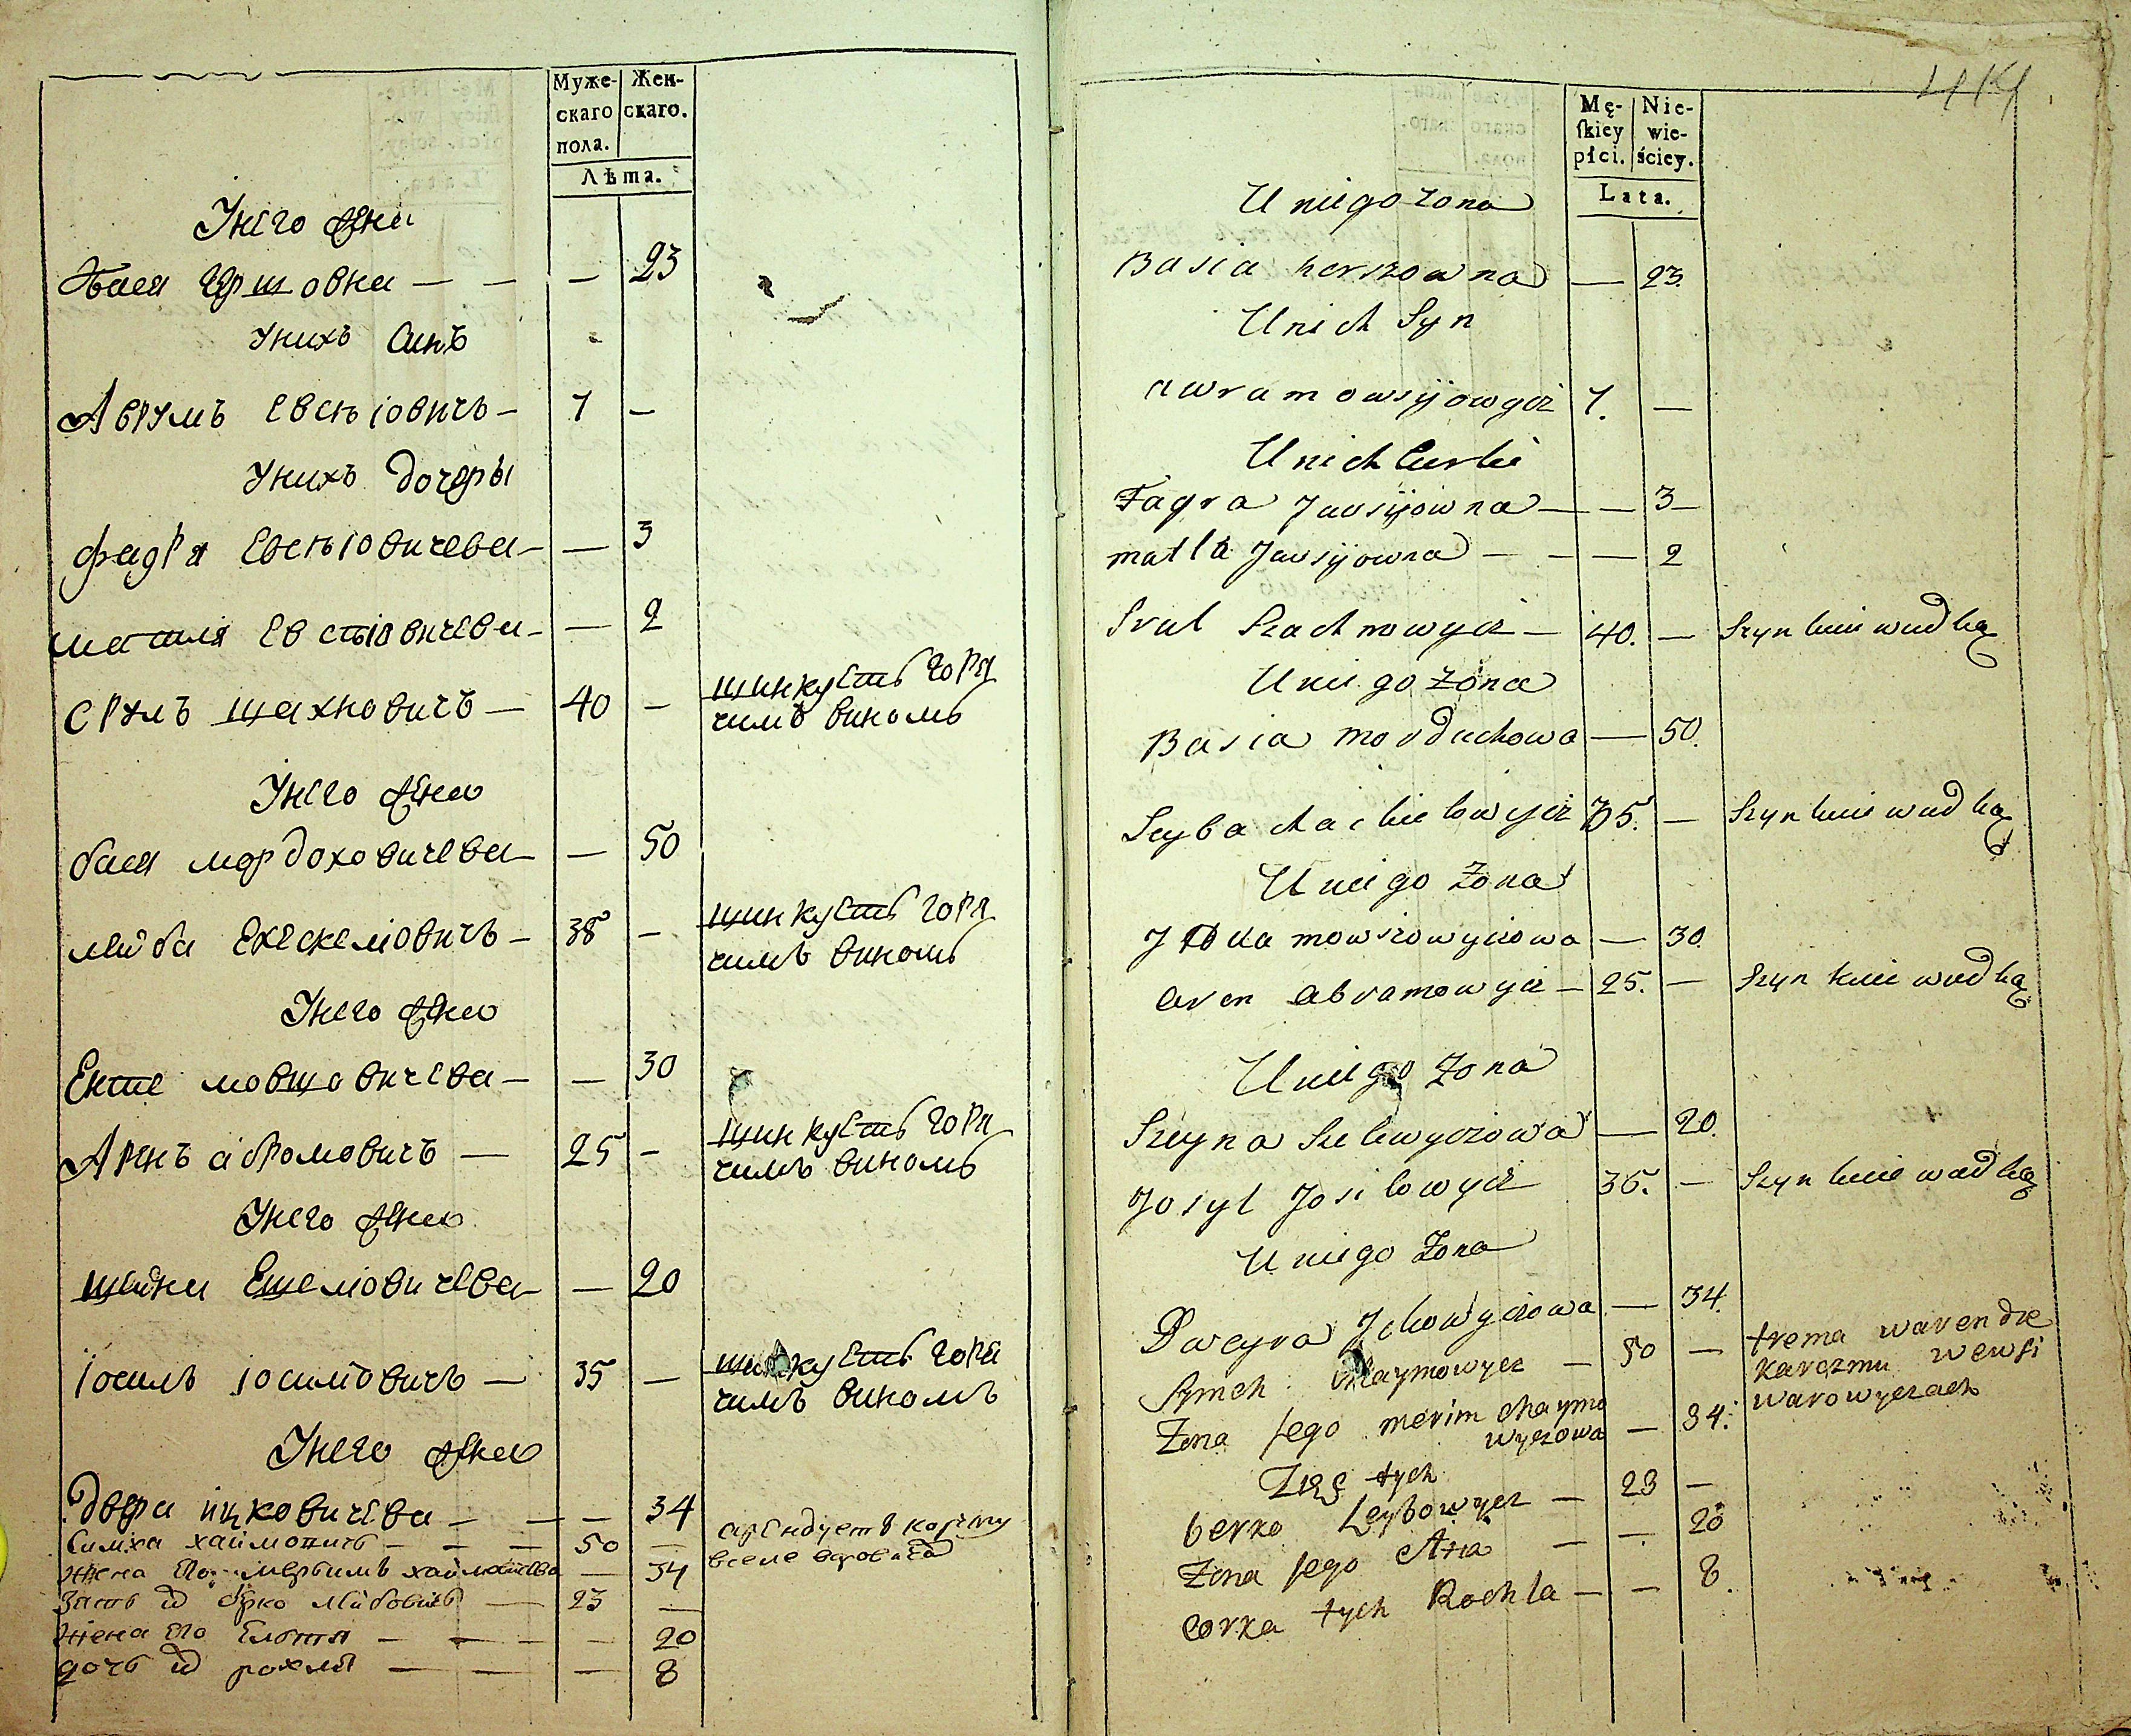 Муже-
скаго
пола.
Жен-
скаго.
Лѣта.
Унего жена
Бася Гершовна — — — 23
Унихъ Синъ
Аврумъ Евсѣіовичъ — 7 —
Унихъ дочеры
Фадгя Евсѣіовичева — — 3
матля Евсѣіовичева — — 2
Срулъ шахновичъ — 40 — шинкуетъ горя
чимъ виномъ
Унего жена
бася мордоховичева — — 50
лейба Ехескеліовичъ — 38 — шинкуетъ горя
чимъ виномъ
Унего жена
Енте мовшовичева — — 30
Аренъ абрамовичъ — 25 — шинкуетъ горя
чимъ виномъ
Унего жена
шейна Ешеліовичева — — 20
Іосилъ іосиліовичъ — 35 — шинкуетъ горя
чимъ виномъ
Унего жена
двера ицковичева — — — 34
Симха хаймовичъ — — — 50 — арендуетъ корчму
жена его мерымъ хаймовичева — 34 вселе
зять ид берко лейбовичъ — 23 —
жена его — — — — 20
дочь ид рохля — — — 8
419
Mę-
skiey
płci.
Nie-
wie-
ściey.
Lata.
U niego żona
Basia herszowna — 23.
U nich Syn
awram owsijowycz 7. —
U nich Curki
Fagra Jawsijowna — — 3 —
matla Jawsijowna — — — 2
Srul Szachnowycz — 40. — Szynkuie wudką
U niego żona
Basia morduchowa — 50.
Leyba chackielowycz 35. — Szynkuie wudką
U niego żona
mowszowyczowa — 30.
Aren Abramowycz — 25. — Szynkuie wudką
U niego żona
Szeyna Szelowyczowa — 20.
Josyl Josilowycz 35. — Szynkuie wudką
U niego żona
Dweyra Jckowyczowa — 34.
Symch Chaymowycz — 50 — trema warendze
karczmu wewsi
Żona Jego merim chaymo
wyczowa — 34. warowyczach
Zięć tych
berko Leybowycz — 23 —
Żona Jego — . 20
corka tych Rochla — — 8.